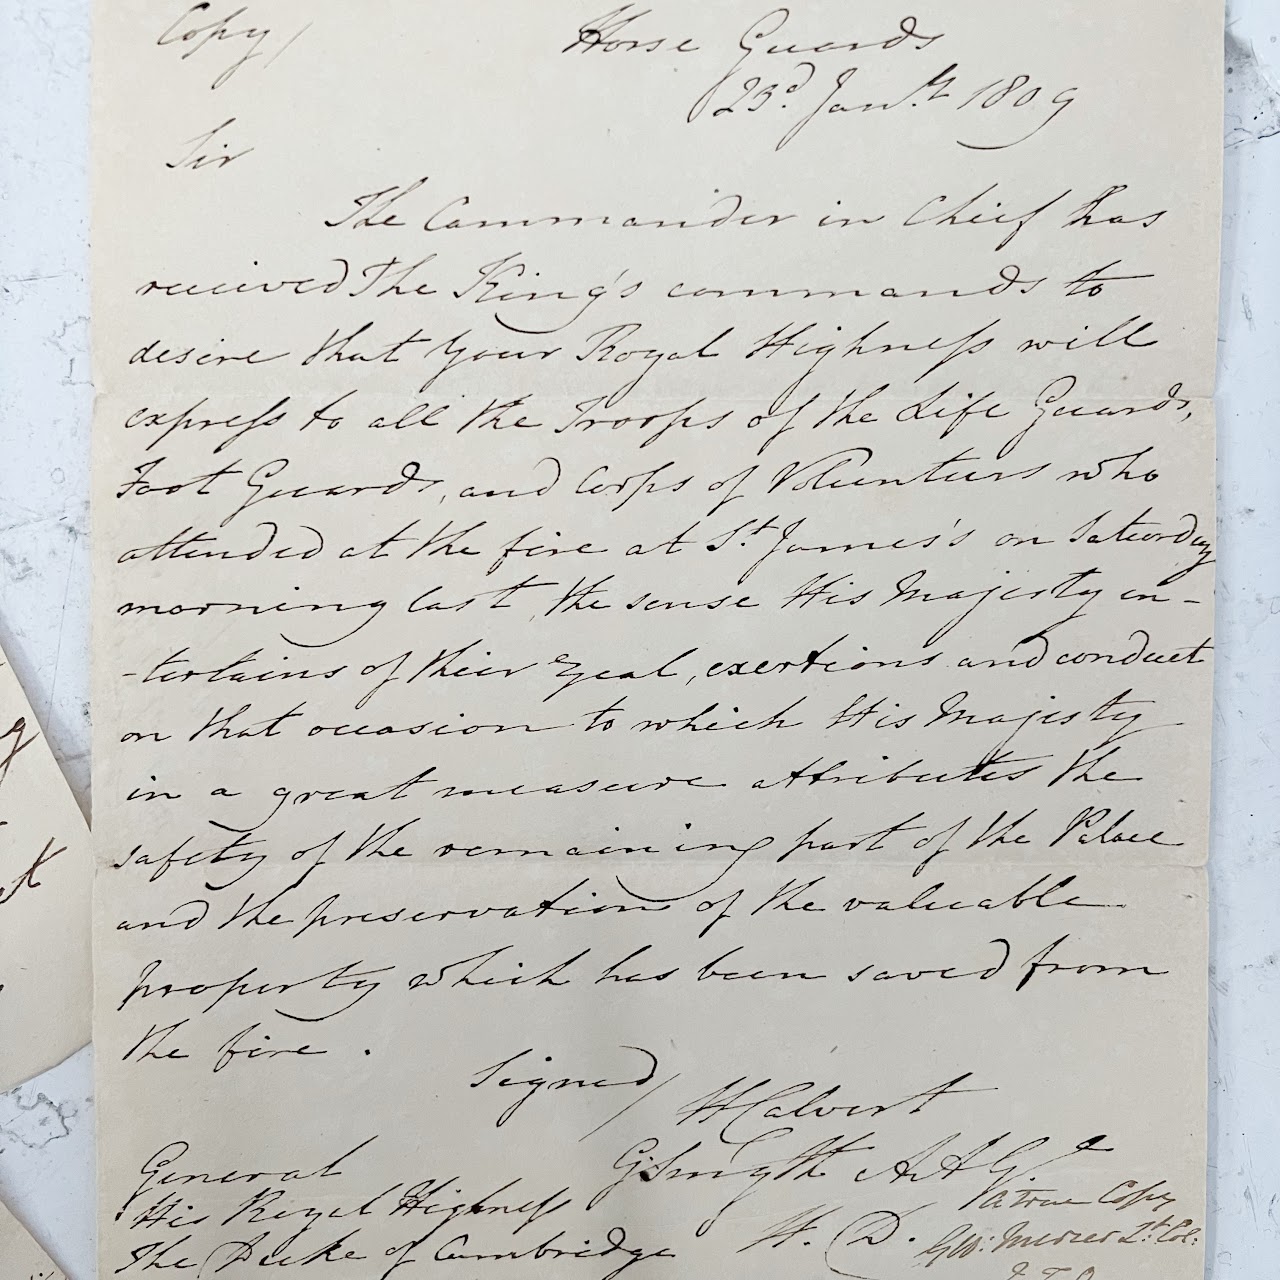 Copy/
Horse Guards
23d. Jany. 1809
Sir
The Commander in Chief has
received The King's commands to
desire that Your Royal Highness will
express to all the Troops of the Life Guards,
Foot Guards, and Corps of Volunteers who
attended at the fire at St. James's on Saturday
morning last, the sense His Majesty en-
-tertains of their zeal, exertions and conduct
on that occasion to which His Majesty
in a great measure attributes the
safety of the remaining part of the Palace
and the preservation of the valuable
property which has been saved from
the fire.
Signed/ H Calvert
General
His Royal Highness
The Duke of Cambridge
G Smyth A A G
H. D.
a true Copy
Geo: Mercer Lt. Col: